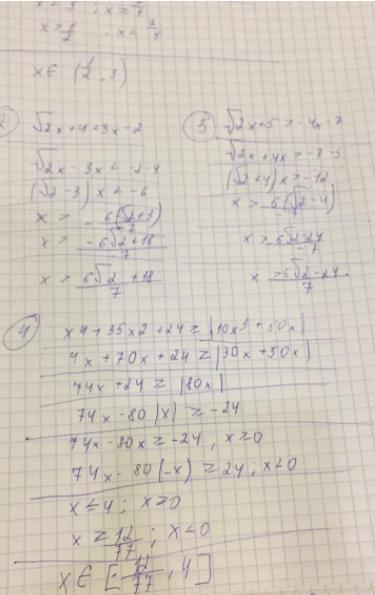 x > 1/2
x ∈ (1/2, 3)
2
√2x+4<3x-2
√2x - 3x < -2-4
(√2-3) x < -6
x > - 6(√2+3) / -7
x > -6√2+18 / -7
x > 6√2+18 / 7
3
√2x+5 > -4x-7
√2x+4x > -7-5
(√2+4)x > -12
x > 6(√2-4) / 7
x > 6√2-24 / 7
x > 6√2-24 / 7
4
x4+35x2+24 ≥ |10x3+50x|
4x+70x+24 ≥ |30x+50x|
74x+24 ≥ |80x|
74x-80|x| ≥ -24
74x-80x ≥ -24, x≥0
74x-80(-x) ≥ 24; x<0
x ≤ 4; x≥0
x ≥ -12/77; x<0
x ∈ [-12/77, 4]